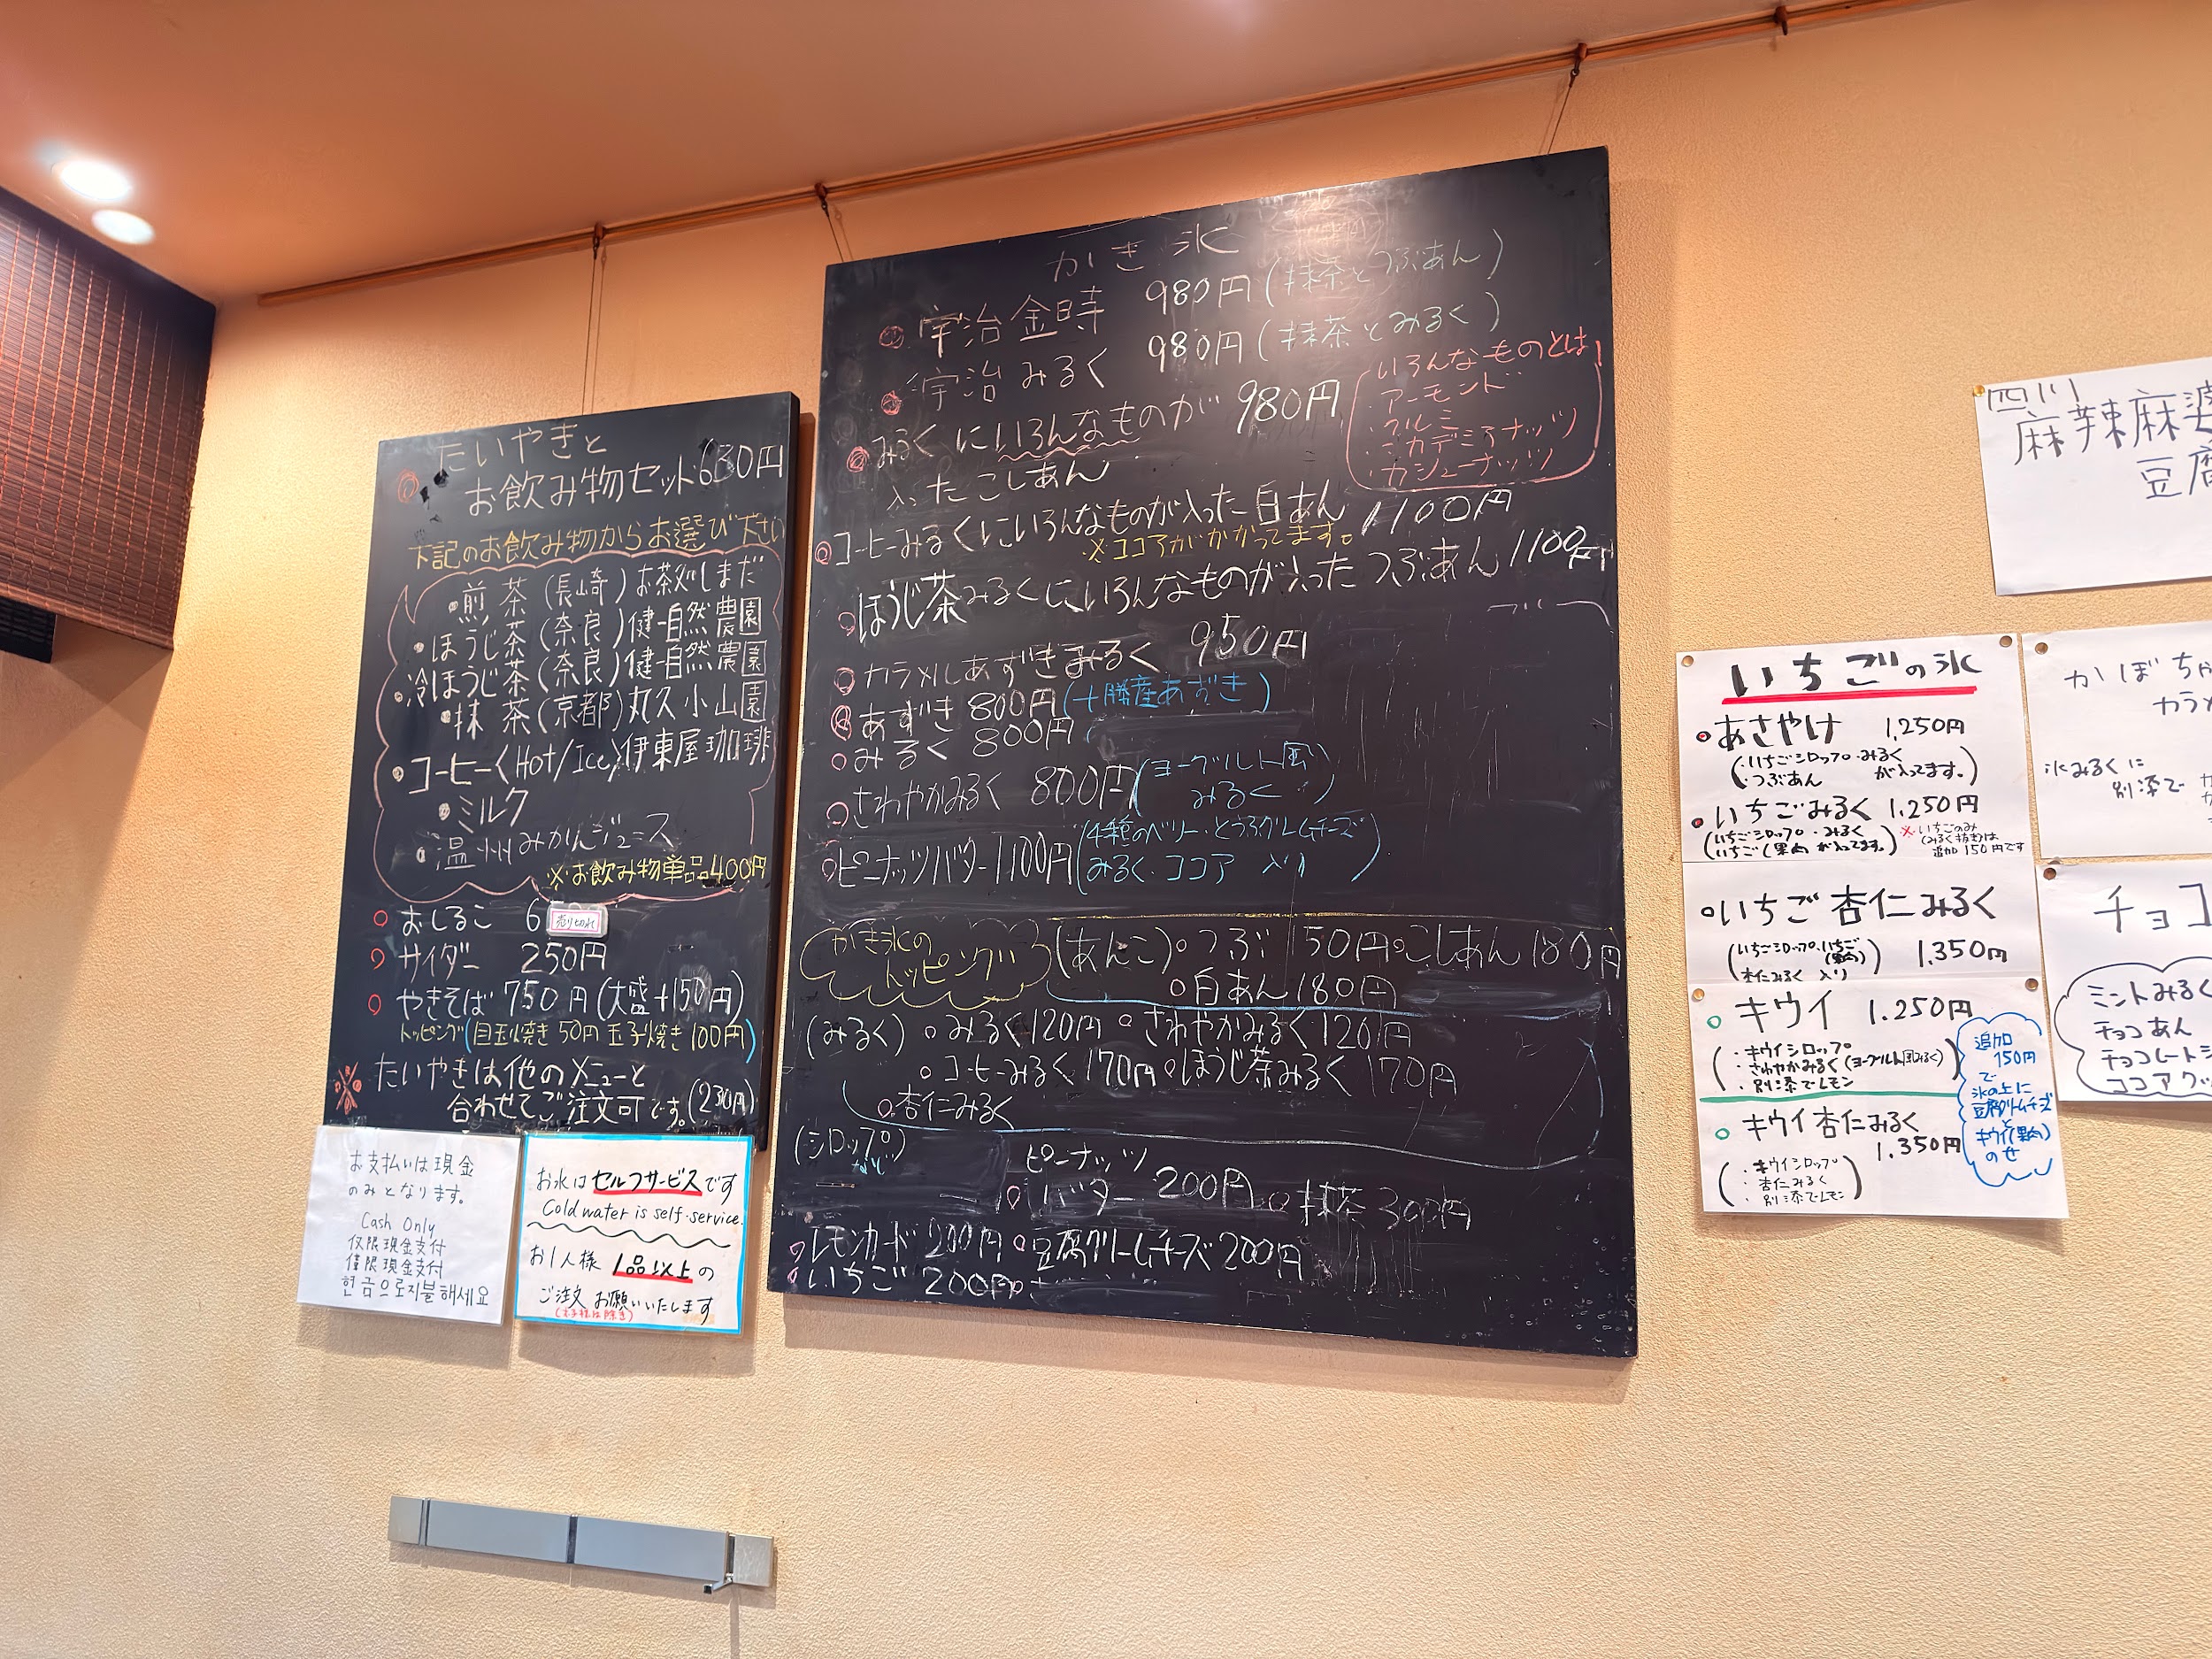 たいやきと
お飲み物セット630円
下記のお飲み物からお選び下さい
・煎茶(長崎)お茶処しまだ
・ほうじ茶(奈良)健一自然農園
・冷ほうじ茶(奈良)健一自然農園
・抹茶(京都)丸久小山園
・コーヒー(Hot/Ice)伊東屋珈琲
・ミルク
・温州みかんジュース
※お飲み物単品400円
○おしるこ 6
売り切れ
○サイダー 250円
○やきそば 750円(大盛+150円)
トッピング(目玉焼き50円 玉子焼き100円)
※たいやきは他のメニューと
合わせてご注文可です。(230円)
お支払いは現金
のみとなります。
Cash Only
仅限現金支付
僅限現金支付
현금으로지불해세요
お水はセルフサービスです
Cold water is self-service.
お1人様 1品以上の
ご注文 お願いいたします
(お子様は除き)
かき氷
宇治金時 980円(抹茶とつぶあん)
宇治みるく 980円(抹茶とみるく)
みるくにいろんなものが 980円
入ったこしあん
いろんなものとは!
・アーモンド
・クルミ
・マカデミアナッツ
・カシューナッツ
コーヒーみるくにいろんなものが入った白あん 1100円
※ココアがかかってます。
ほうじ茶みるくにいろんなものが入ったつぶあん1100円
カラメルあずきみるく 950円
あずき 800円(十勝産あずき)
みるく 800円
さわやかみるく 800円(ヨーグルト風
みるく)
ピーナッツバター1100円(4種のベリー・とうふクリームチーズ
みるく・ココア 入り)
かき氷の
トッピング
(あんこ)○つぶ 150円○こしあん180円
○白あん180円
(みるく)○みるく120円○さわやかみるく120円
○コーヒーみるく170円○ほうじ茶みるく170円
○杏仁みるく
(シロップ
など)
○ピーナッツ
バター 200円○抹茶300円
○レモンカード200円○豆腐クリームチーズ200円
○いちご 200円
いちごの氷
・あさやけ 1,250円
(・いちごシロップ・みるく
・つぶあん が入ってます。)
・いちごみるく 1,250円
(いちごシロップ・みるく
いちご(果肉)が入ってます。)
※いちごのみ
(みるく抜き)は
追加150円です
○いちご杏仁みるく
(いちごシロップ・いちご(果肉)
杏仁みるく 入り) 1,350円
○キウイ 1.250円
(・キウイシロップ
・さわやかみるく(ヨーグルト風みるく)
・別添でレモン)
○キウイ杏仁みるく
1.350円
(・キウイシロップ
・杏仁みるく
・別添でレモン)
追加
150円
で
氷の上に
豆腐クリームチーズ
と
キウイ(果肉)
のせ
四川
麻辣麻婆
豆腐
かぼちゃ
カラメ
氷みるくに
別添で
チョコ
ミントみるく
チョコあん
チョコレートシ
ココアクッ